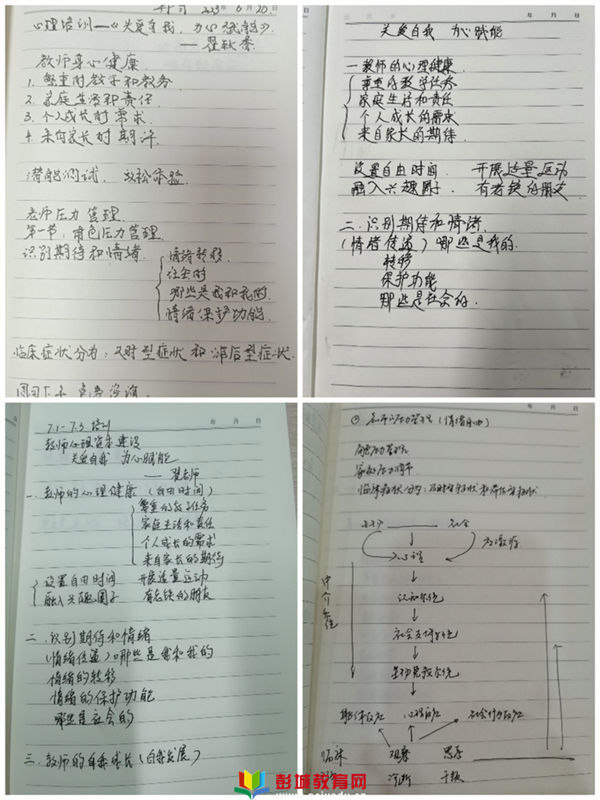 2023年6月20日
心理培训—《关爱自我,为心赋能》
——翟秋季
教师身心健康
1. 繁重的教学和教务
2. 家庭生活和责任
3. 个人成长的需求
4. 来自家长的期许
潜能测试,放松体验
老师压力管理
第一节:角色压力管理
识别期待和情绪
情绪转移
社会的
哪些是我和我的
情绪保护功能
临床症状分为:及时型症状和滞后型症状.
关爱自我 为心赋能
一 教师的心理健康
繁重的教学任务
家庭生活和责任
个人成长的需求
来自家长的期待
设置自由时间 开展适量运动
融入兴趣圈子 有老铁的朋友
二. 识别期待和情绪
(情绪传递) 哪些是我的
转移
保护功能
哪些是社会的
年 月 日
7.1-7.3 培训
教师心理资本建设
关爱自我 为心赋能
——翟老师
一. 老师的心理健康 (自由时间)
繁重的教学任务
家庭生活和责任
个人成长的需求
来自家长的期待
设置自由时间 开展适量运动
融入兴趣圈子 有老铁的朋友
二. 识别期待和情绪
(情绪传递) 哪些是我和我的
情绪的转移
情绪的保护功能
哪些是社会的
三. 教师的自我成长 (自我发展)
年 月 日
临床症状分为:及时型症状和滞后型症状
社会
中介系统
认知系统
社会支持系统
生物免疫系统
心理反应
社会行为反应
临床
观察
思考
诊断
干预
彭城教育网